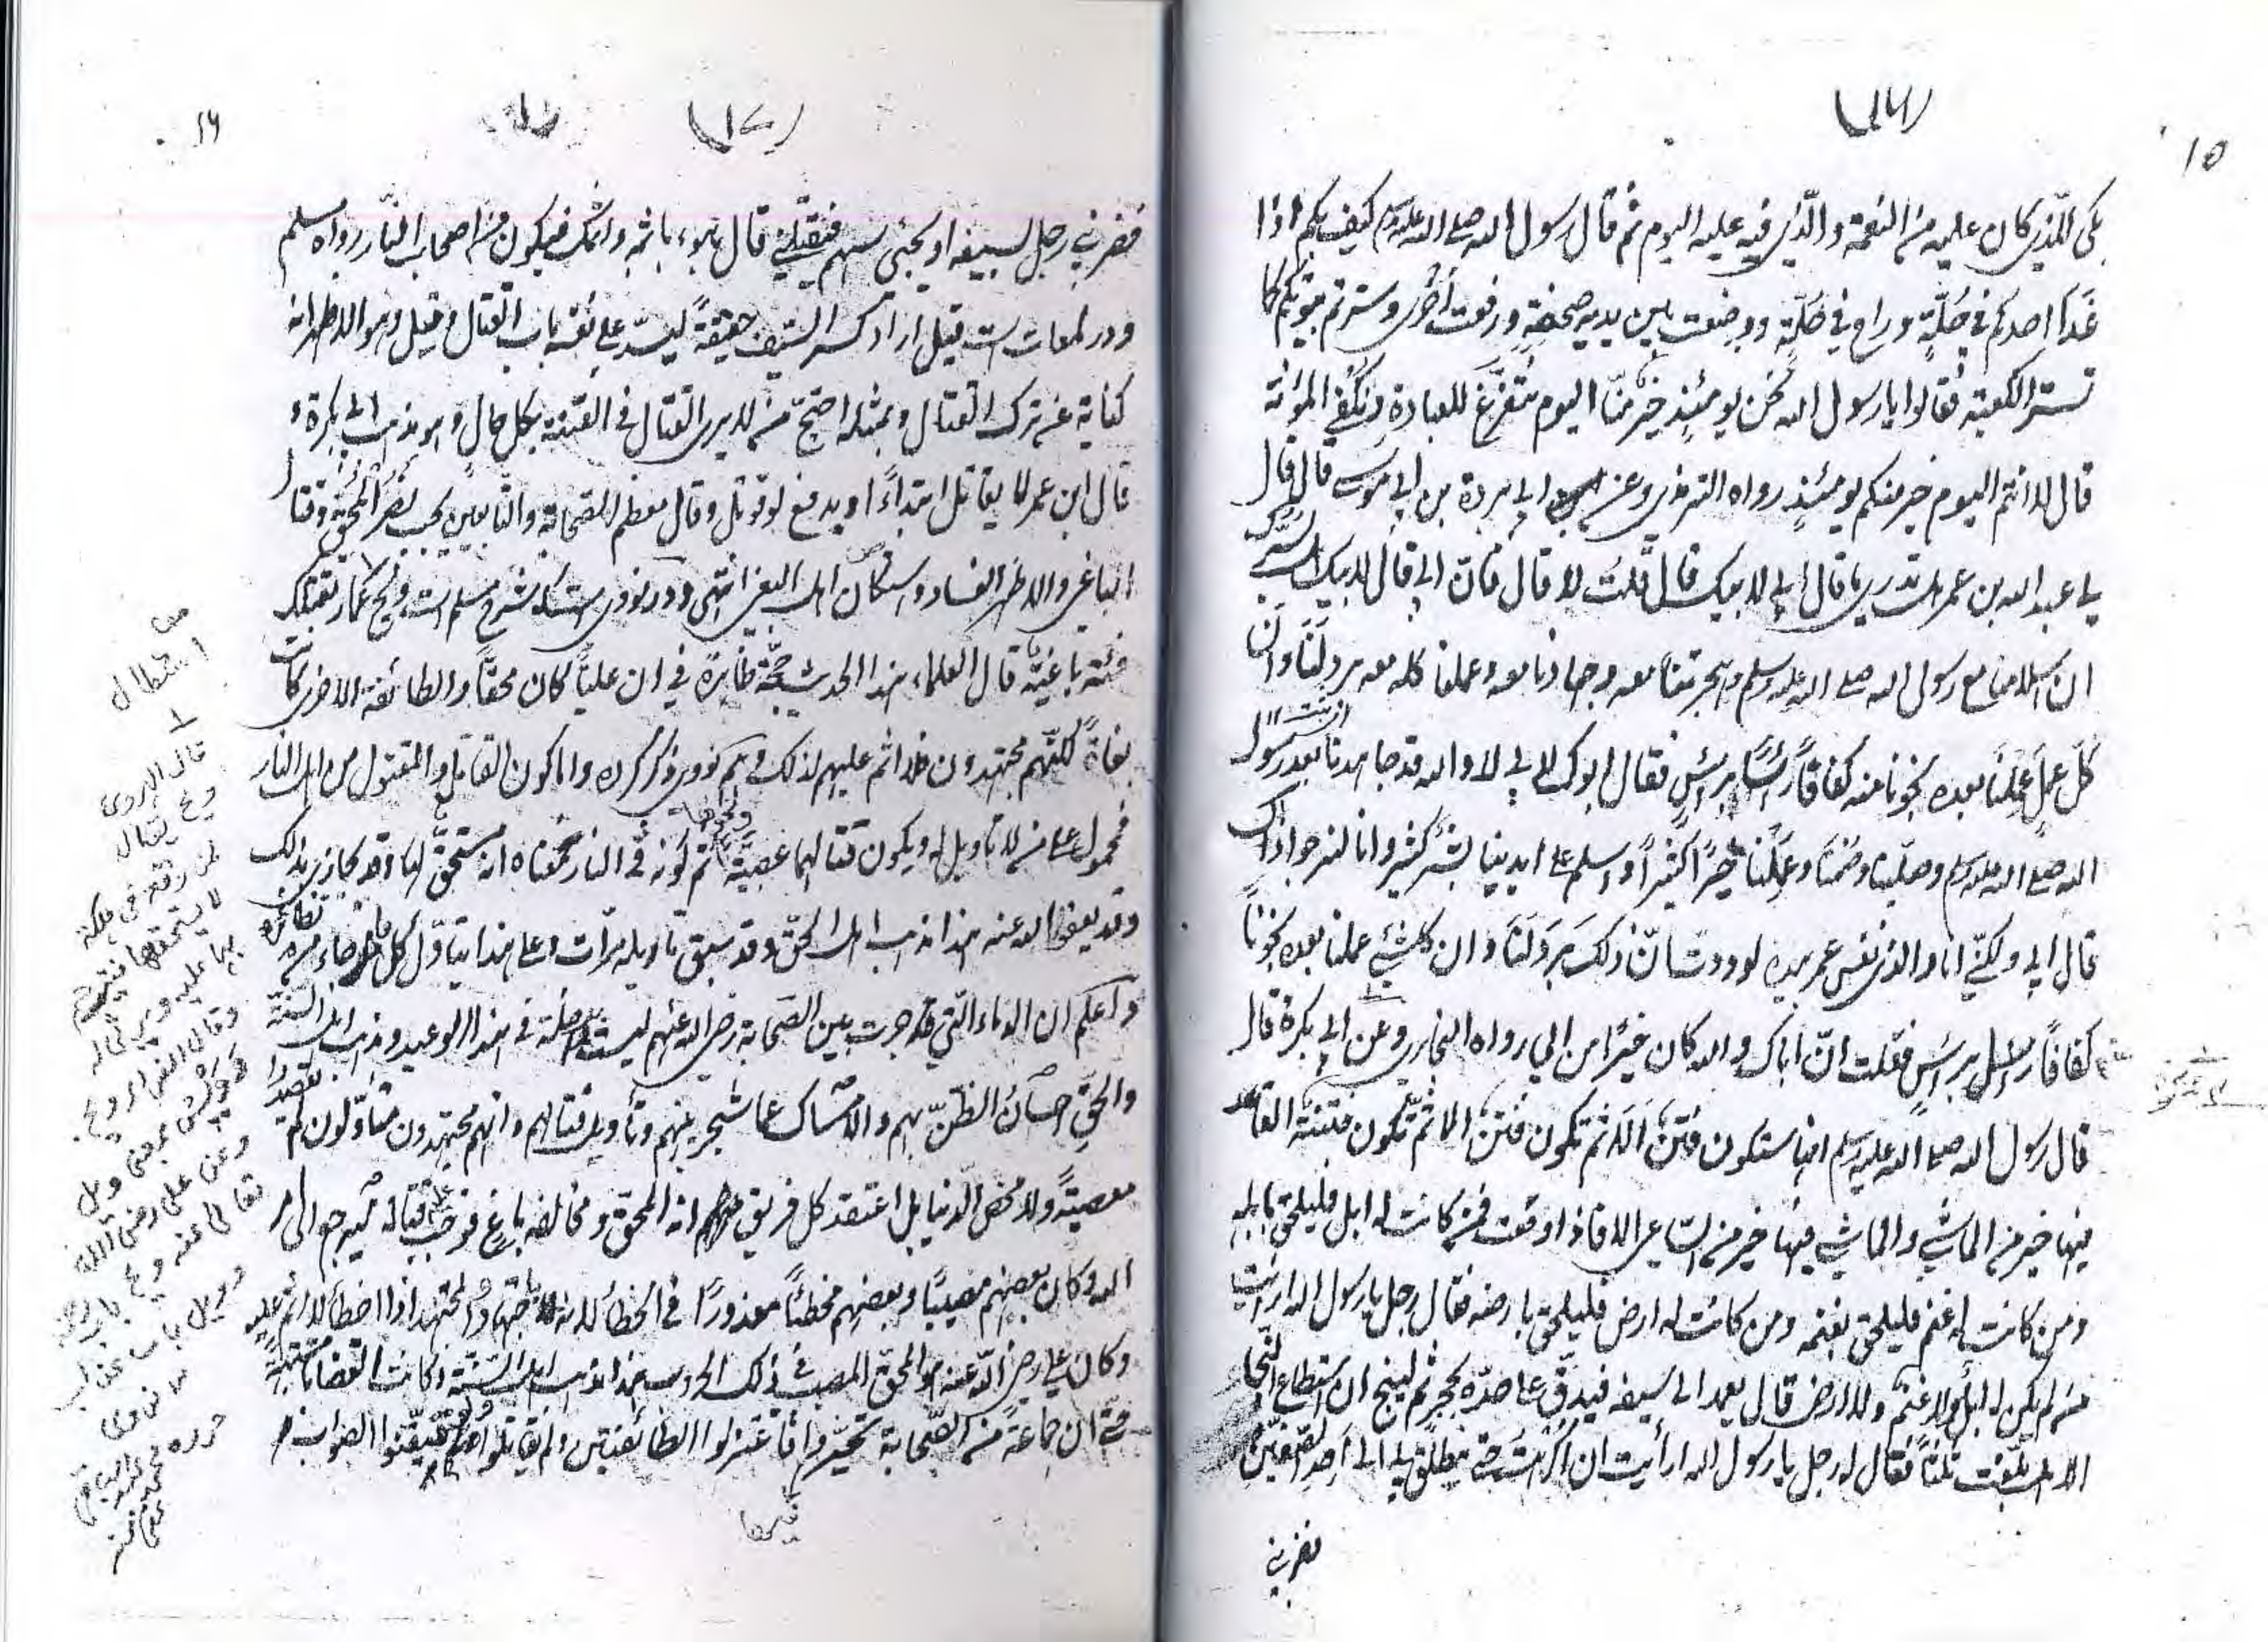 ١٥
(١٦)
بكى للذي كان عليه من النعمة والذي فيه عليه اليوم ثم قال رسول الله صلى الله عليه وسلم كيف بكم اذا
غدا احدكم في حلة وراح في حلة ووضعت بين يديه صحفة ورفعت أخرى وسترتم بيوتكم كما
تستر الكعبة فقالوا يا رسول الله نحن يومئذ خير منا اليوم نتفرغ للعبادة ونكفى المؤنة
قال لا انتم اليوم خير منكم يومئذ رواه الترمذي وعن ابى بردة بن ابى موسى قال قال
لى عبد الله بن عمر هل تدرى ما قال ابى لابيك قال قلت لا قال فان ابى قال لابيك هل يسرك
ان اسلامنا مع رسول الله صلى الله عليه وسلم وهجرتنا معه وجهادنا معه وعملنا كله معه برد لنا وان
كل عمل عملنا بعده نجونا منه كفافاً رأساً برأس فقال ابوك لابى لا والله قد جاهدنا بعد رسول
الله صلى الله عليه وسلم وصلينا وصمنا وعملنا خيراً كثيراً واسلم على ايدينا بشر كثير وانا لنرجوا ذاك
قال ابى ولكنى انا والذى نفس عمر بيده لوددت ان ذلك برد لنا وان كل شئ عملنا بعده نجونا
كفافاً رأسا برأس فقلت ان اباك والله كان خيرا من ابي رواه البخارى وعن ابى بكرة قال
قال رسول الله صلى الله عليه وسلم انها ستكون فتن الا ثم تكون فتن الا ثم تكون فتنة القاعد
فيها خير من الماشى والماشى فيها خير من الساعى الا فاذا وقعت فمن كانت له ابل فليلحق بابله
ومن كانت له غنم فليلحق بغنمه ومن كانت له ارض فليلحق بارضه فقال رجل يا رسول الله ارأيت
من لم يكن له ابل ولا غنم ولا ارض قال يعمد الى سيفه فيدق على حده بحجر ثم لينج ان استطاع النجا
اللهم هل بلغت ثلثاً فقال له رجل يا رسول الله ارأيت ان اكرهت حتى ينطلق بى الى احد الصفين
فضربنى
١٦
(١٧)
فضربنى رجل بسيفه او يجئ سهم فيقتلنى قال يبوء باثمه واثمك فيكون من اصحاب النار رواه مسلم
ودر لمعات ست قيل اراد كسر السيف حقيقة ليسد على نفسه باب القتال وقيل وهو الاظهر انه
كناية عن ترك القتال وبمثله احتج من لا يرى القتال فى الفتنة بكل حال وهو مذهب ابى بكرة و
قال ابن عمر لا يقاتل ابتداءً ويدفع لو قوتل وقال معظم الصحابة والتابعين يجب نصر المحق وقتال
الباغى والا ظهر الفساد واستطال اهل البغى انتهى ودر نووى شرح مسلم ست ويح عمار تقتلك
فئة باغية قال العلماء هذا الحديث حجة ظاهرة فى ان علياً كان محقاً والطائفة الاخرى كانت
بغاةً لكنهم مجتهدون فلا اثم عليهم لذلك وهم نووى ذكر كرده واما كون القاتل والمقتول من اهل النار
فمحمول على من لا تاويل له ويكون قتالهما عصبية ونحوها ثم كونه فى النار معناه انه مستحق لها وقد يجازى بذلك
وقد يعفو الله عنه هذا مذهب اهل الحق وقد سبق تاويله مرات وعلى هذا يتاول كل ما جاء من نظائره
واعلم ان الدماء التى جرت بين الصحابة رضى الله عنهم ليست بداخلة فى هذا الوعيد ومذهب اهل السنة
والحق احسان الظن بهم والامساك عما شجر بينهم وتأويل قتالهم وانهم مجتهدون متأولون لم يقصدوا
معصيةً ولا محض الدنيا بل اعتقد كل فريق انه المحق ومخالفه باغ فوجب عليه قتاله ليرجع الى امر
الله وكان بعضهم مصيبًا وبعضهم مخطئاً معذورًا فى الخطأ لانه باجتهاد والمجتهد اذا اخطأ لا اثم عليه
وكان على رضى الله عنه هو المحق المصيب فى ذلك الحروب هذا مذهب اهل السنة وكانت القضايا مشتبهة
حتى ان جماعةً من الصحابة تحيروا فيها فاعتزلوا الطائفتين ولم يقاتلوا ولم يتيقنوا الصواب
قال الهروى
ويح يقال
لمن وقع فى هلكة
لا يستحقها فيترحم
بها عليه ويرثى له
وقال الفراء ويح
وويس بمعنى ويل
وعن على رضى الله
تعالى عنه ويح باب رحمة
وويل باب عذاب